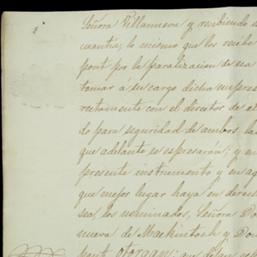 Señora Villanueva y recibiendo
cuantia, lo mismo que los recibe
pont por la paralizacion de sea
tomar á su cargo dicha empres
rectamente con el director de
do para seguridad de ambos, la
que adelante se espresarán; y
presente instrumento y en
que mejor lugar haya en derec
seo, los nominados, Señora Do
nueva de Mackintosh y Don
pont, otorgan: que dejan